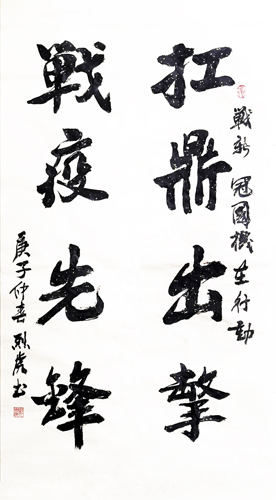 戰新冠國機在行動
扛鼎出擊
戰疫先鋒
庚子仲春孙虎书